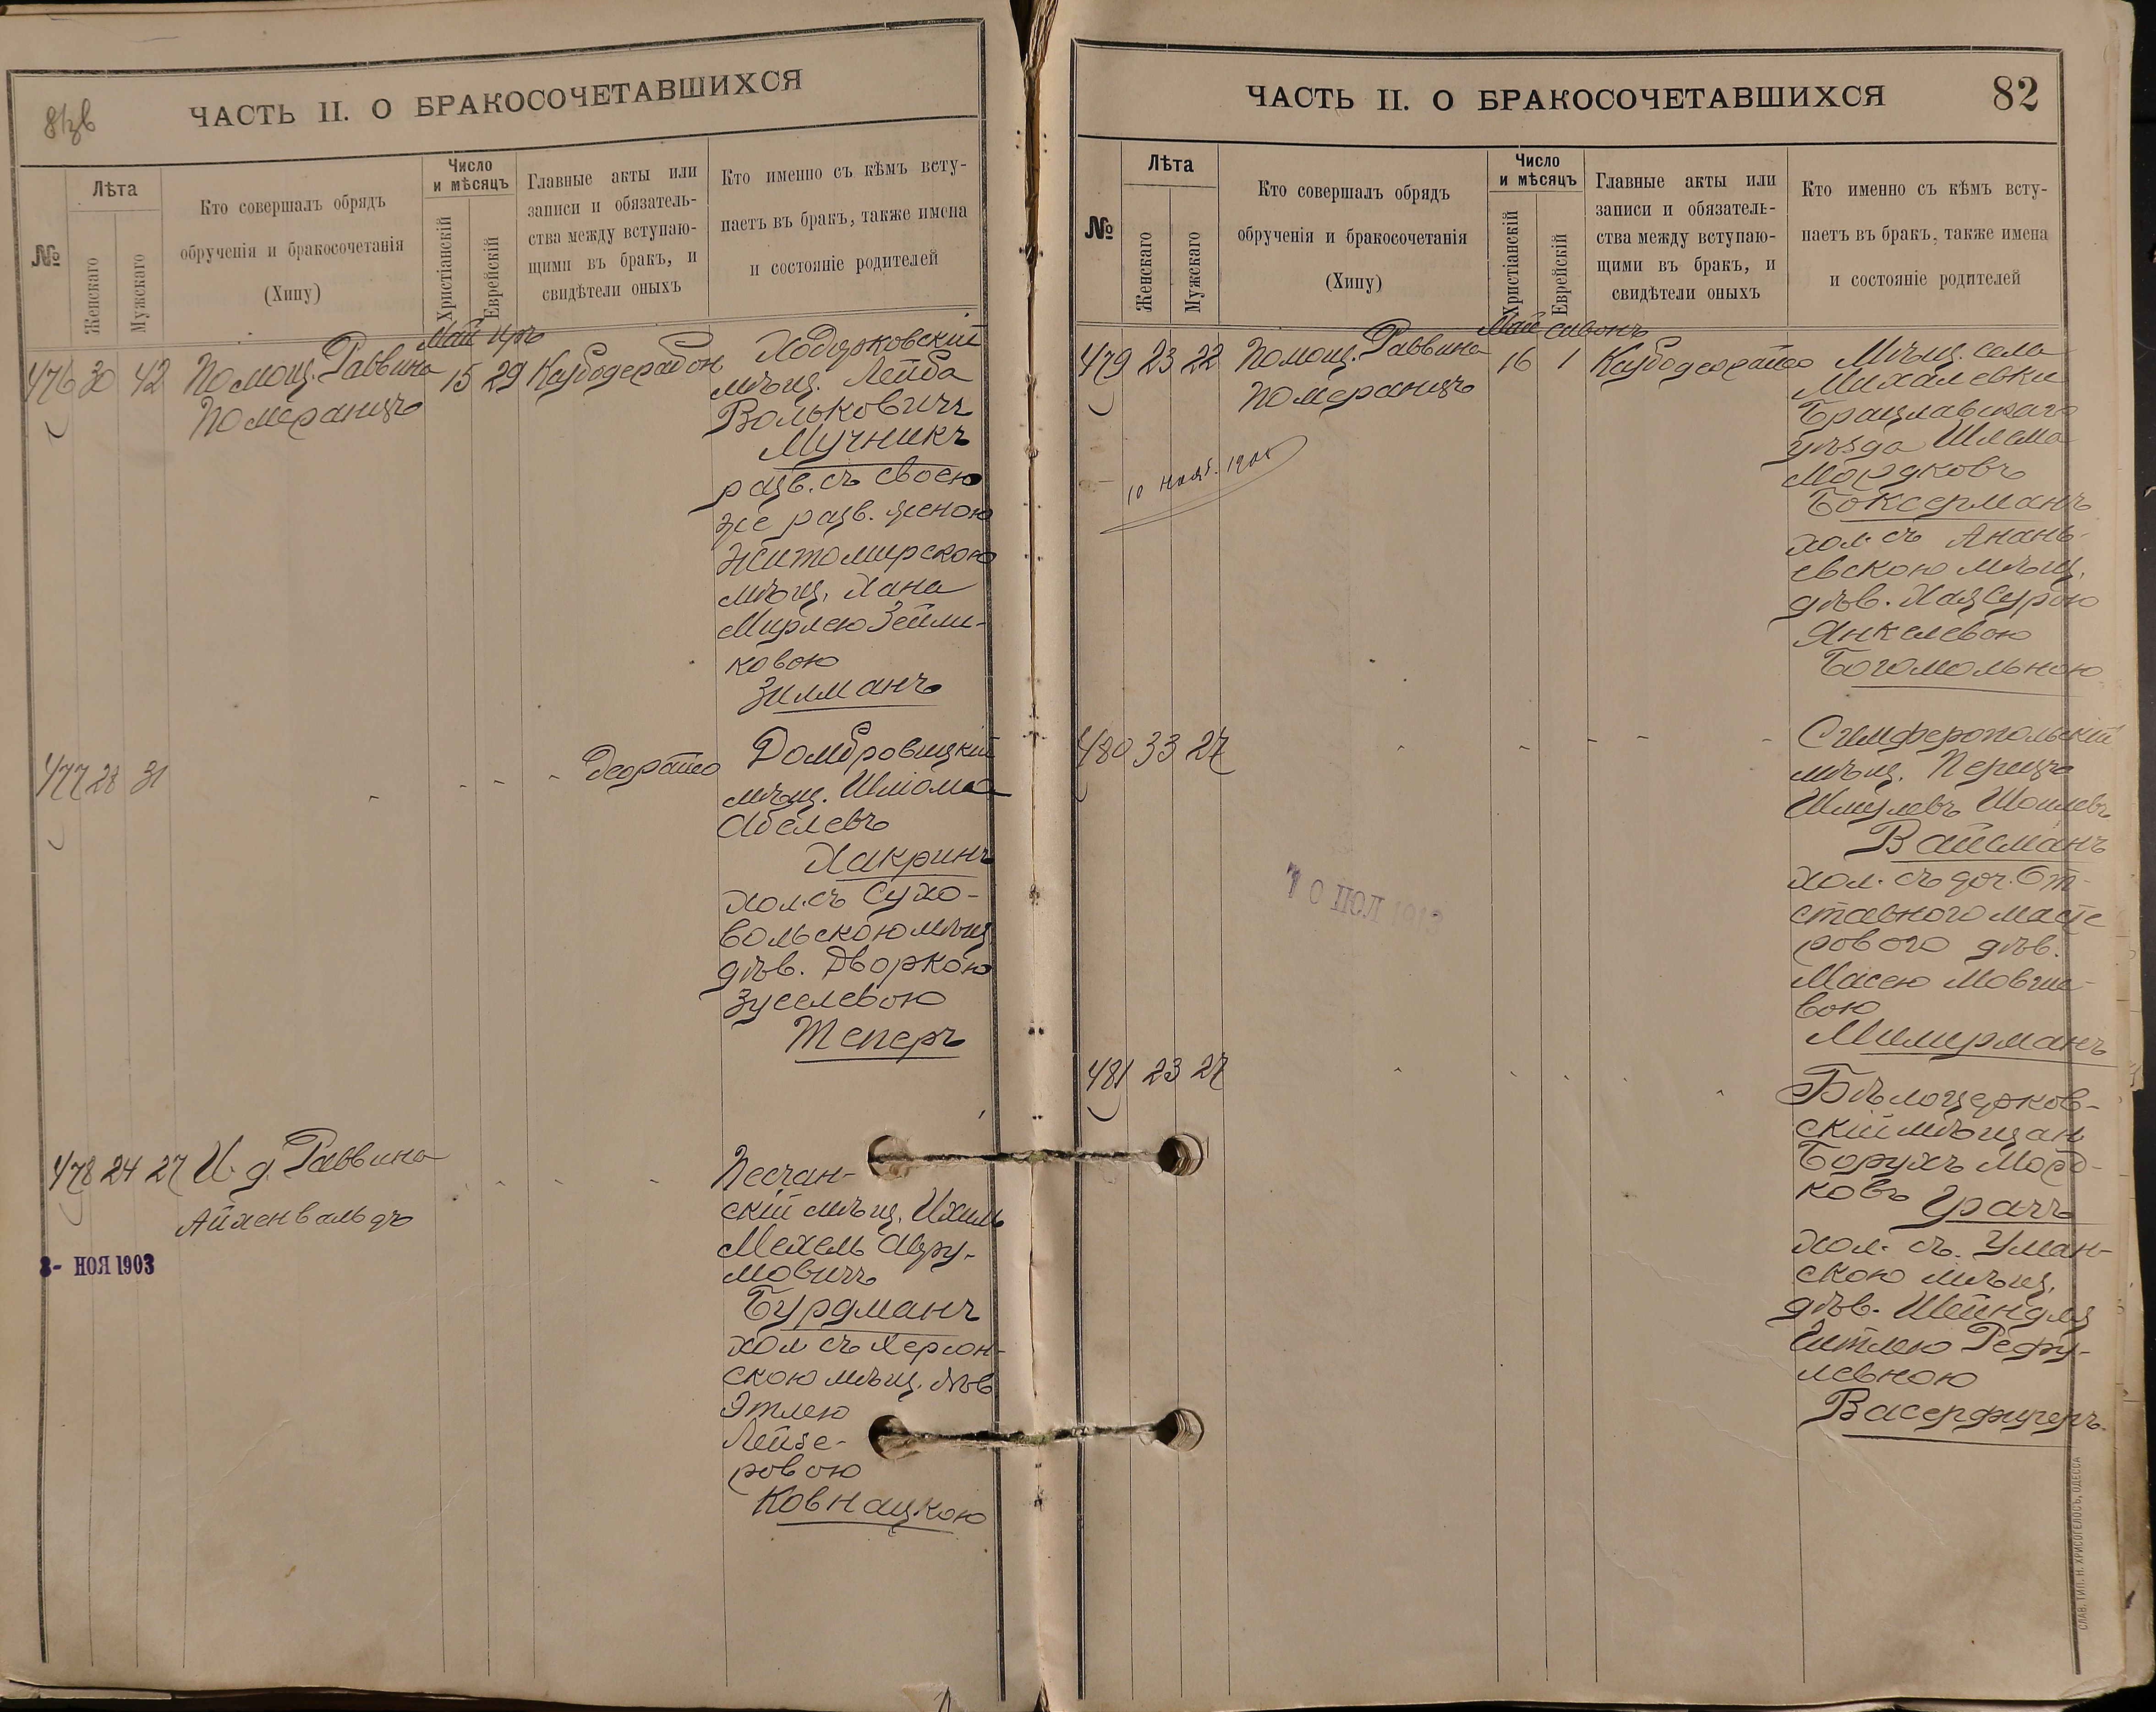 81зв
ЧАСТЬ II. О БРАКОСОЧЕТАВШИХСЯ
№
Лѣта
Женскаго
Мужскаго
Кто совершалъ обрядъ
обрученія и бракосочетанія
(Хипу)
Число
и мѣсяцъ
Христіанскій
Еврейскій
Главные акты или
записи и обязатель-
ства между вступаю-
щими въ бракъ, и
свидѣтели оныхъ
Кто именно съ кѣмъ всту-
паетъ въ бракъ, также имена
и состояніе родителей
Май Іяръ
476 30 42 Помощ. Раввина 15 29
Померанцъ
Ходорковскій
мѣщ. Лейба
Вольковичъ
Мучникъ
разв. съ своею
же разв. женою
Житомирскою
мѣщ. Хана
Мирлею Зейли-
ковою
Зилманъ
477 28 31
Домбровицкій
мѣщ. Шліома
Абелевъ
Хакринъ
хол. съ Сухо-
вольскою мѣщ
дѣв. Дворкою
Зуселевою
Теперъ
478 24 27 И. д. Раввина
Айхенвальдъ
3- НОЯ 1903
Песчан-
скій мѣщ. Ихиль
Мехель Авру-
мовичъ
Бурдманъ
хол съ Херсон-
скою мѣщ. дѣв
Этлею
Лейзе-
ровою
Ковнацкою
ЧАСТЬ II. О БРАКОСОЧЕТАВШИХСЯ
82
№
Лѣта
Женскаго
Мужскаго
Кто совершалъ обрядъ
обрученія и бракосочетанія
(Хипу)
Число
и мѣсяцъ
Христіанскій
Еврейскій
Главные акты или
записи и обязатель-
ства между вступаю-
щими въ бракъ, и
свидѣтели оныхъ
Кто именно съ кѣмъ всту-
паетъ въ бракъ, также имена
и состояніе родителей
Май Сивонъ
479 23 22 Помощ. Раввина 16 1
Померанцъ
Мѣщ. села
Михалевки
Брацлавскаго
уѣзда Шлема
Мордковъ
Боксерманъ
хол. съ Анань-
евскою мѣщ.
дѣв. Хая Сурою
Янкелевою
Богомольною
480 33 27
Симферопольскій
мѣщ. Перецъ
Шмулевъ Шоилевъ
Вайсманъ
хол. съ доч. От-
ставного масте
рового дѣв.
Масею Мовше-
вою
Мимирманъ
10 ІЮЛ 1913
481 23 27
Бѣлоцерков-
скій мѣщан
Борухъ Морд-
ковъ Грачъ
хол. съ Уман-
скою мѣщ.
дѣв. Шейндля
Гитлею Рефу-
левною
Васерфирерь
СЛАВ. ТИП. Н. ХРИСОГЕЛОСЪ, ОДЕССА